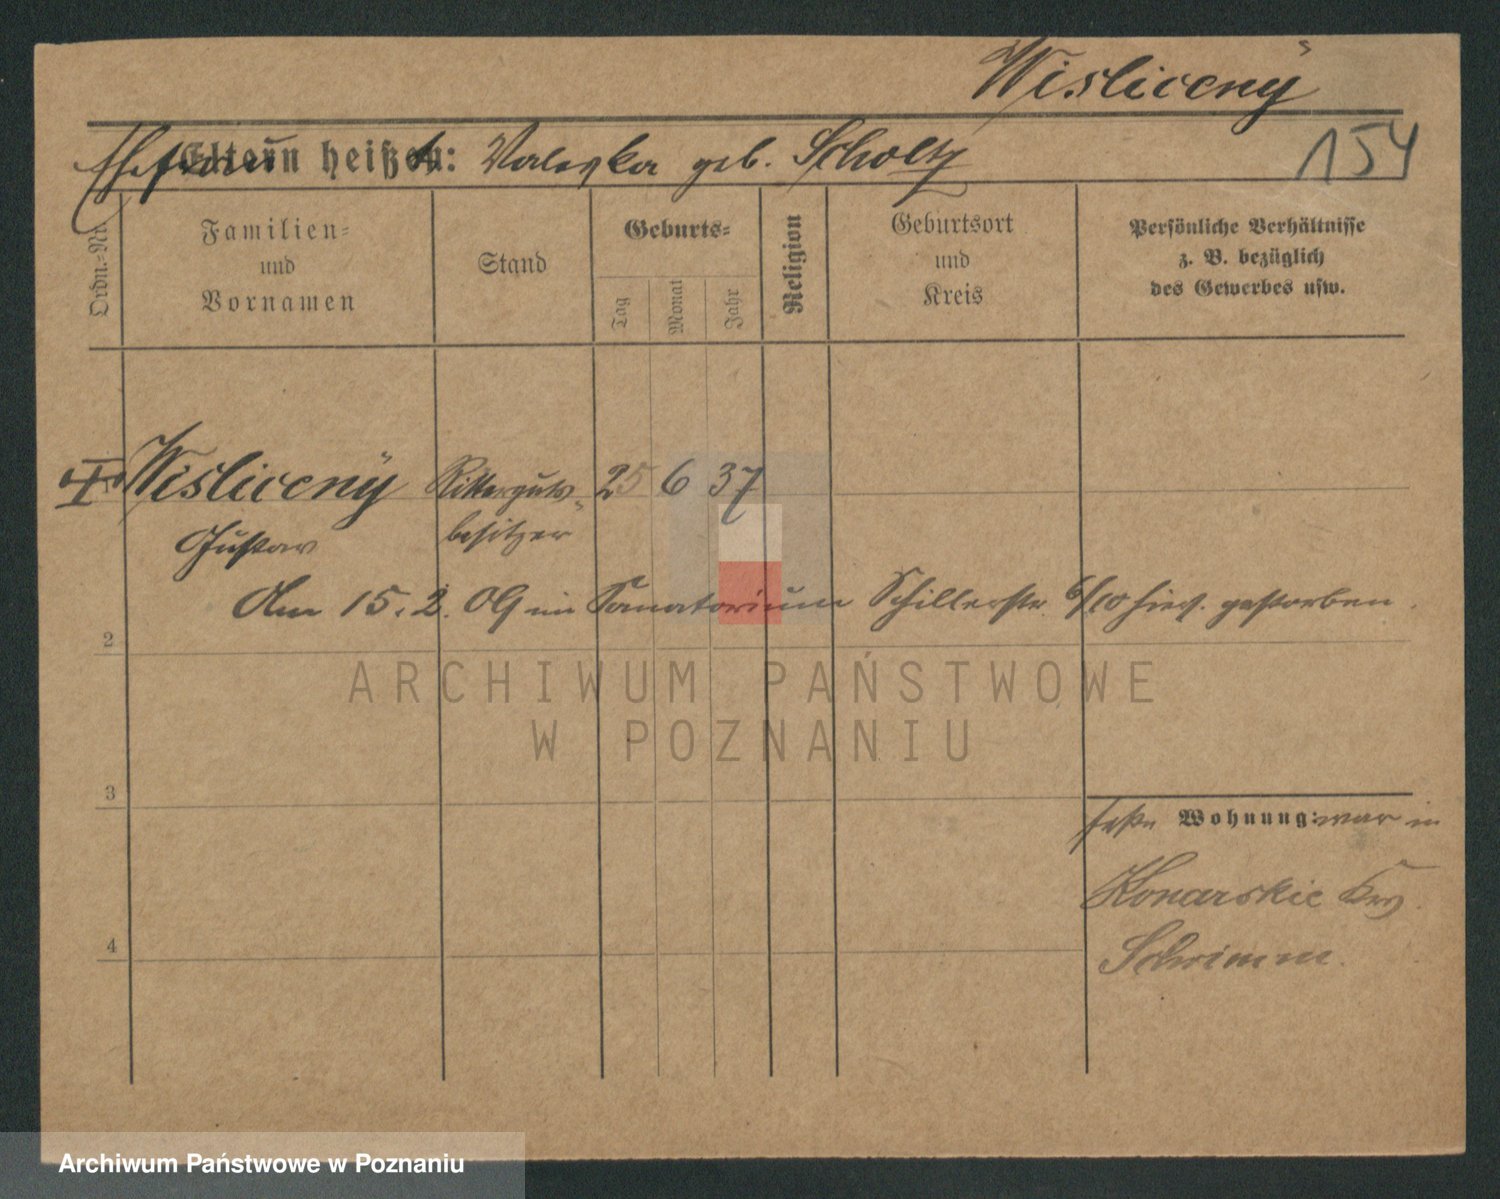 Wisliceny
Ehefrau Eltern heißen: Valeska geb. Scholtz
154
Ordn.-Nr.
Familien-
und
Vornamen
Stand
Geburts-
Tag
Monat
Jahr
Religion
Geburtsort
und
Kreis
Persönliche Verhältnisse
z. B. bezüglich
des Gewerbes usw.
Wisliceny Ritterguts- 25 6 37
Gustav besitzer
Am 15. 2. 09 im Sanatorium Schillerstr. 6/10 hies. gestorben.
2
ARCHIWUM PAŃSTWOWE
W POZNANIU
3
feste Wohnung: war in
Konarskie Krs.
Schrimm.
4
Archiwum Państwowe w Poznaniu